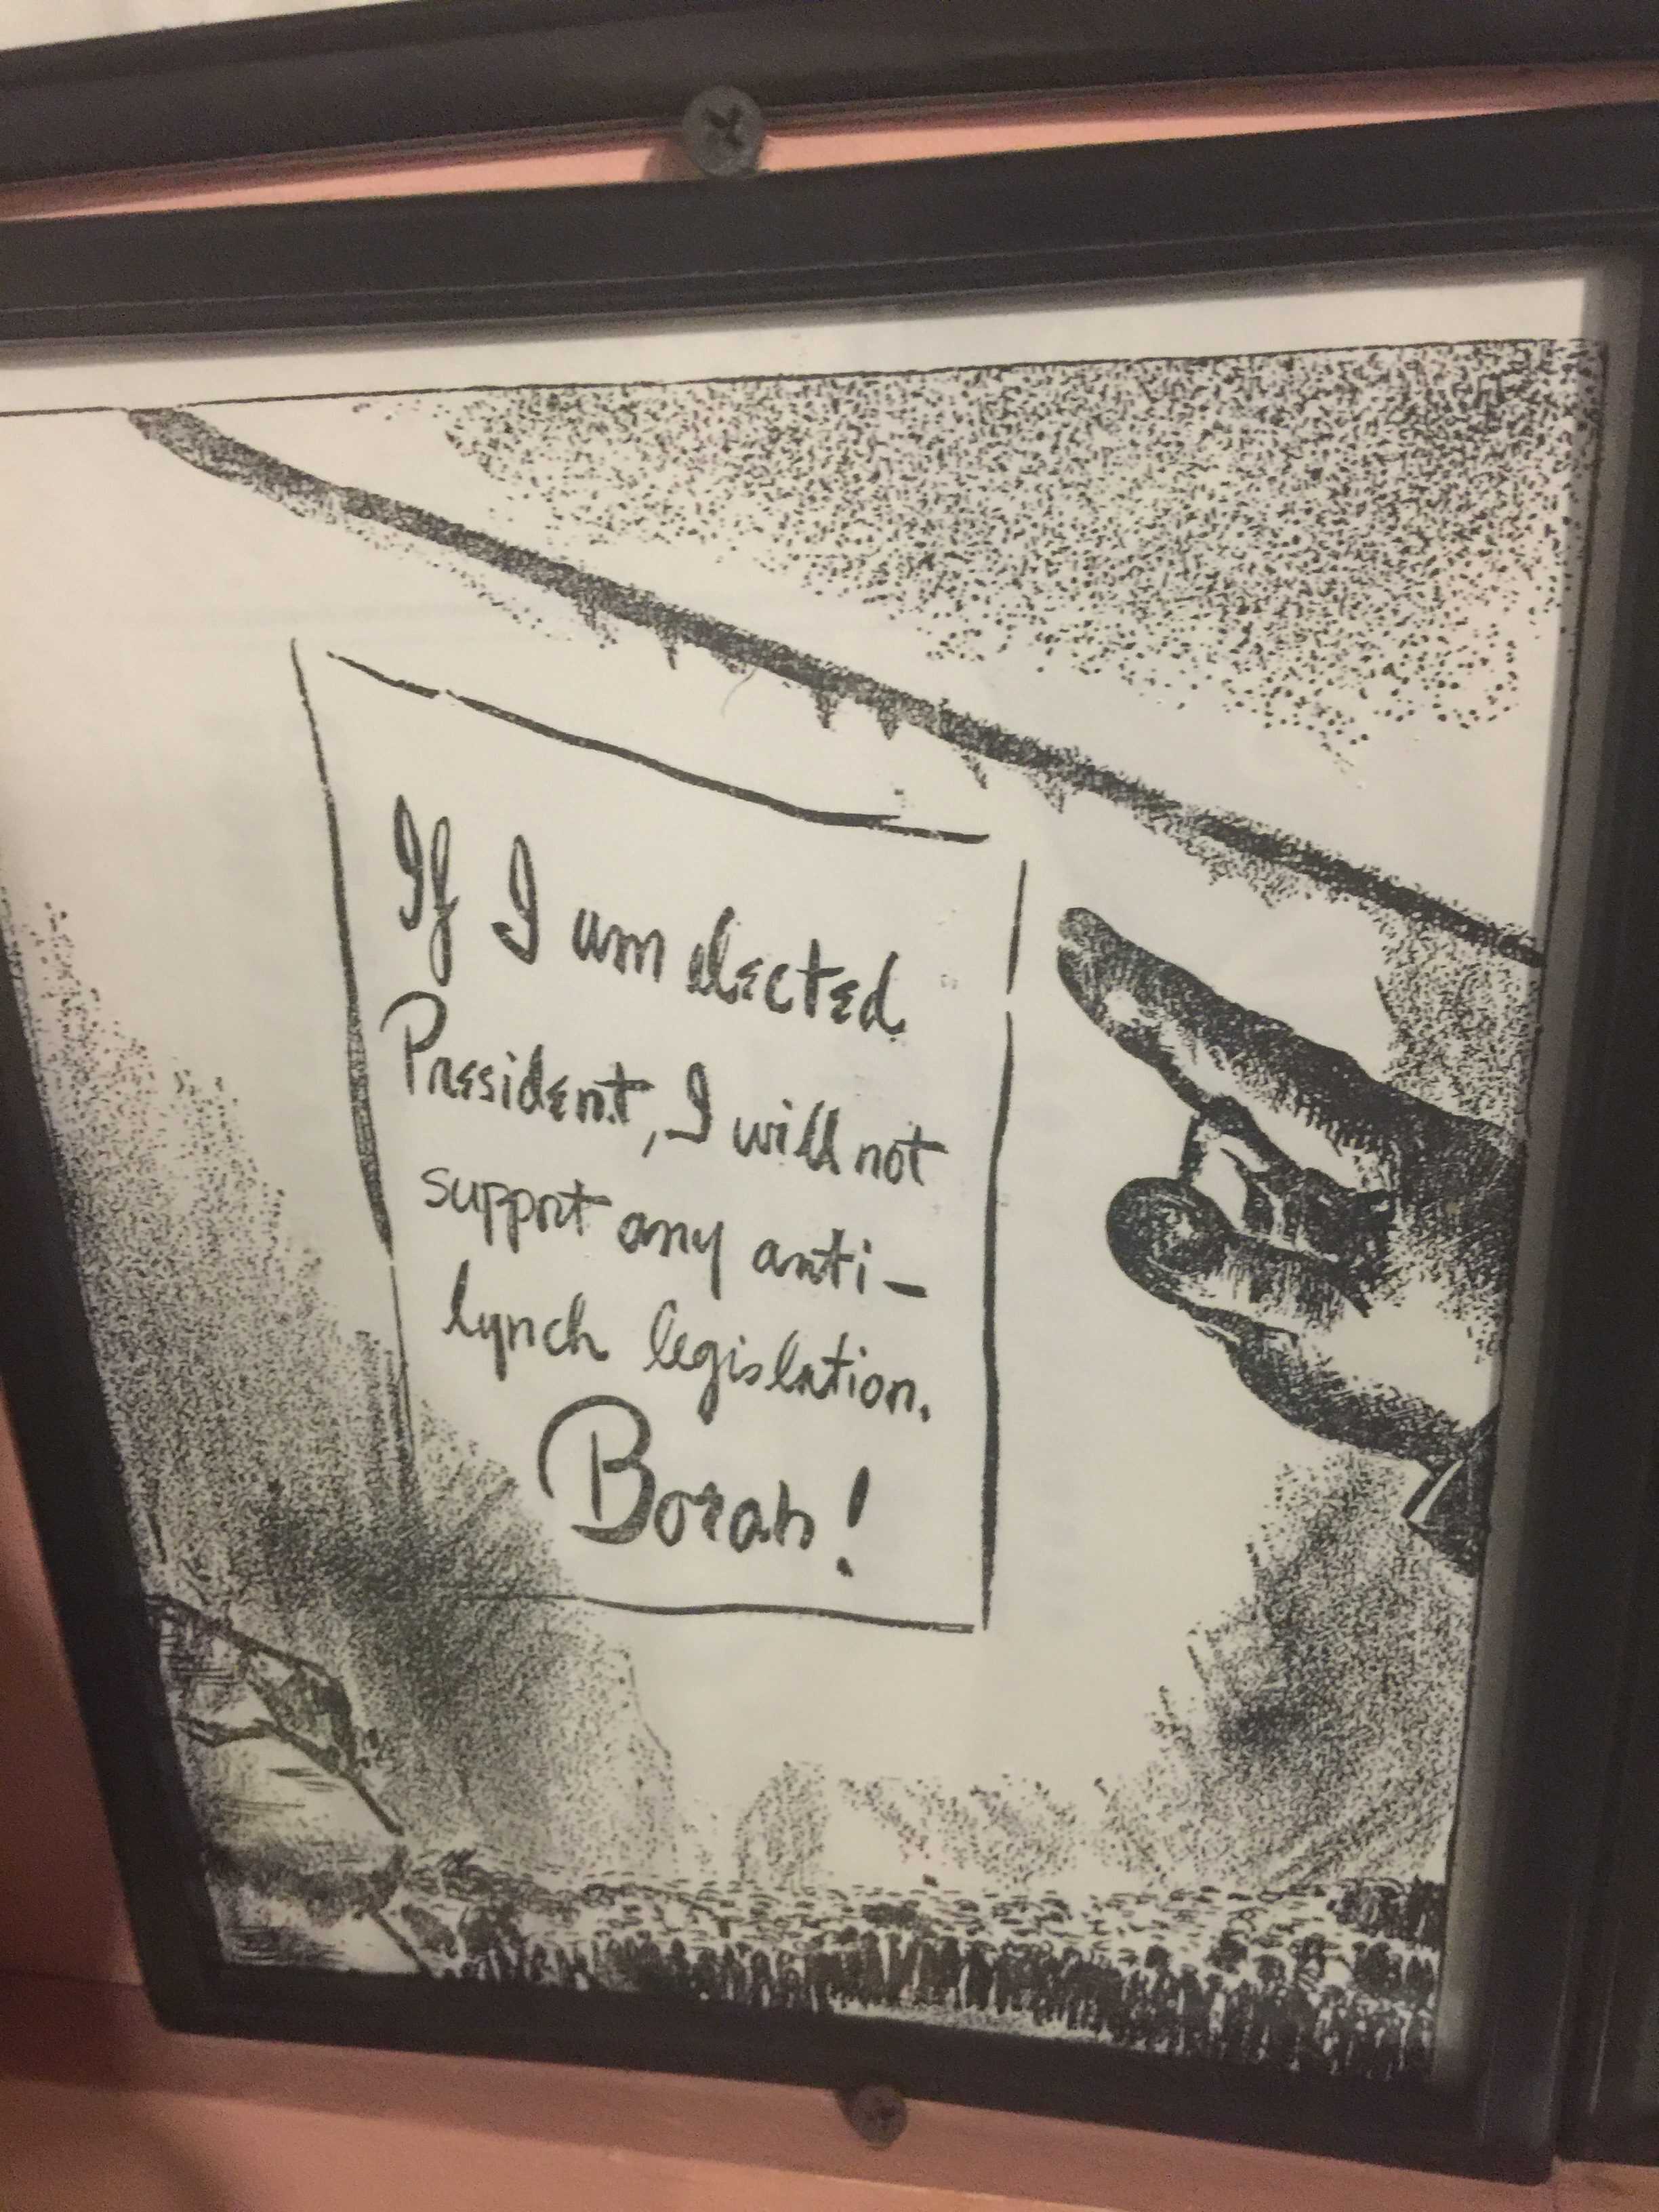 If I am elected
President, I will not
support any anti-
lynch legislation.
Borah!